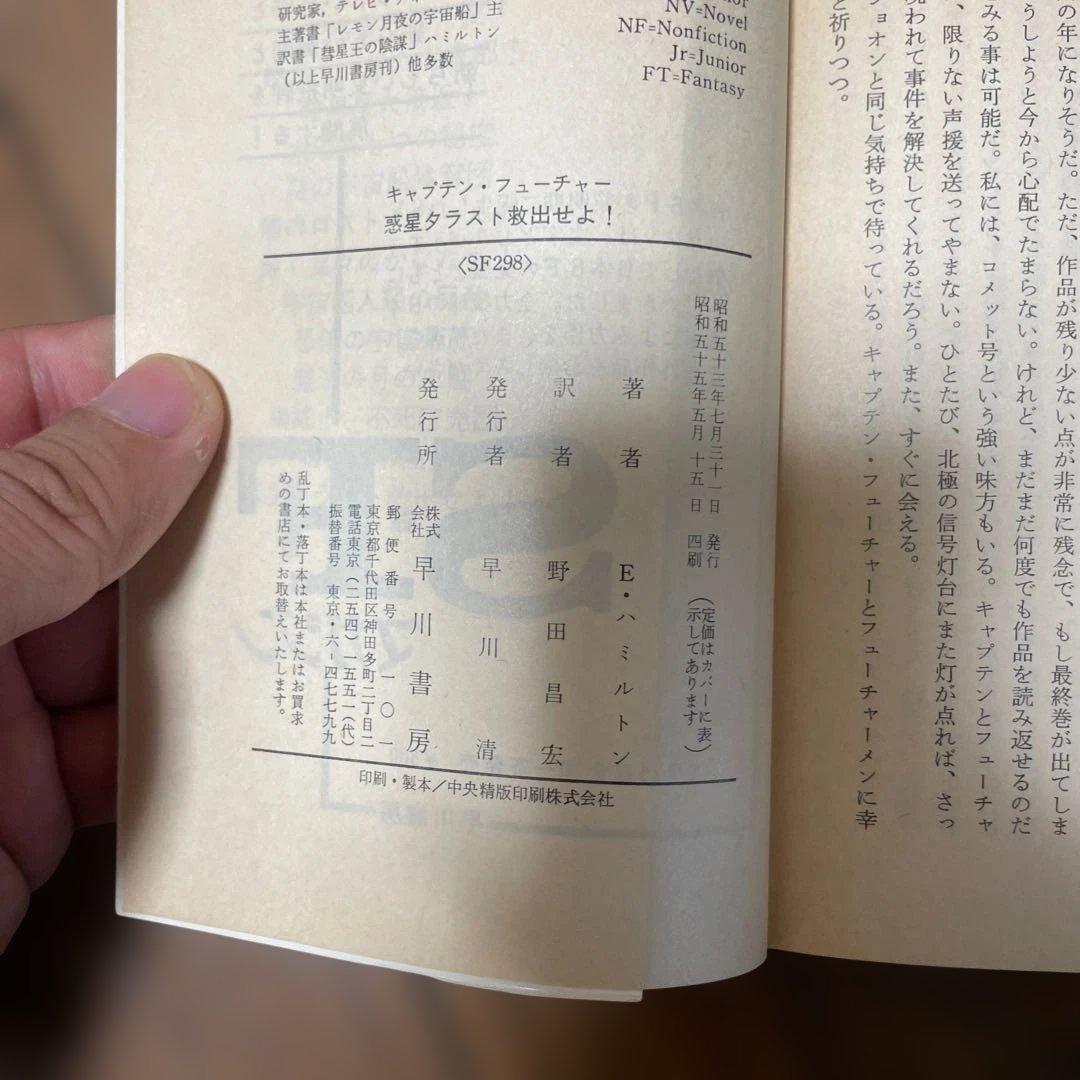 研究家，テレビ・
主著書「レモン月夜の宇宙船」主
訳書「彗星王の陰謀」ハミルトン
（以上早川書房刊）他多数
NV=Novel
NF=Nonfiction
Jr=Junior
FT=Fantasy
キャプテン・フューチャー
惑星タラスト救出せよ！
〈SF298〉
昭和五十三年七月三十一日 発行
昭和五十五年五月 十五 日 四刷
（定価はカバーに表
示してあります）
著者 E・ハミルトン
訳者 野田昌宏
発行者 早川 清
発行所 株式会社 早川書房
郵便番号 一〇一
東京都千代田区神田多町二丁目二
電話東京（二五四）一五五一（代）
振替番号 東京・六-四七七九九
乱丁本・落丁本は本社またはお買求
めの書店にてお取替えいたします。
印刷・製本／中央精版印刷株式会社
の年になりそうだ。ただ、作品が残り少ない点が非常に残念で、もし最終巻が出てしま
うしようと今から心配でたまらない。けれど、まだまだ何度でも作品を読み返せるのだ
みる事は可能だ。私には、コメット号という強い味方もいる。キャプテンとフューチャ
、限りない声援を送ってやまない。ひとたび、北極の信号灯台にまた灯が点れば、さっ
われて事件を解決してくれるだろう。また、すぐに会える。
ションと同じ気持ちで待っている。キャプテン・フューチャーとフューチャーメンに幸
と祈りつつ。